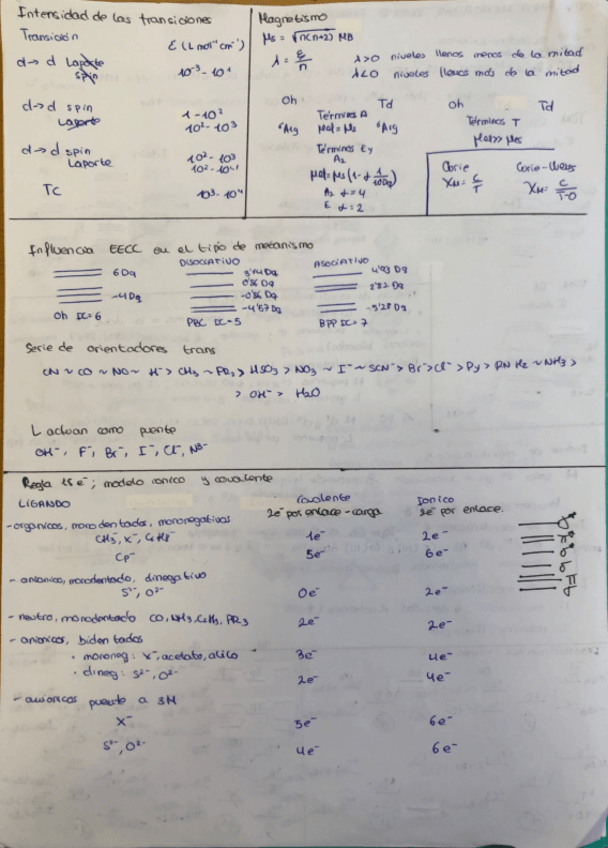 Intensidad de las transiciones
Transición
ε (L mol⁻¹ cm⁻¹)
d→d Laporte
spin
10⁻³ - 10¹
d→d spin
Laporte
1 - 10²
10² - 10³
d→d spin
Laporte
10² - 10³
10² - 10⁴
TC
10³ - 10⁴
Magnetismo
μs = √n(n+2) MB
λ = ξ/n
λ>0 niveles llenos menos de la mitad
λ<0 niveles llenos más de la mitad
Oh Td
Términos A
⁶A1g μef = μs ⁶A1g
Términos E y
A2
μef = μs (1 - α λ/10Dq)
A2 α = 4
E α = 2
Oh Td
Términos T
μef >> μs
Curie
XM = C/T
Curie-Weiss
XM = C/T-θ
Influencia EECC en el tipo de mecanismo
6Dq
-4Dq
Oh IC=6
DISOCIATIVO
0'86 Dq
-0'86 Dq
-4'57 Dq
IC=5
ASOCIATIVO
4'93 Dq
2'82 Dq
-5'28 Dq
BPP IC=7
Serie de orientadores trans
CN ~ CO ~ NO ~ H⁻ > CH3 ~ PR3 > HSO3 > NO3 ~ I⁻ ~ SCN⁻ > Br⁻ > Cl⁻ > Py > RNH2 ~ NH3 >
> OH⁻ > H2O
L actuan como puente
OH⁻, F⁻, Br⁻, I⁻, Cl⁻, N3⁻
Regla 18 e⁻; modelo ionico y covalente
LIGANDO
Covalente
2e⁻ por enlace - carga
Ionico
2e⁻ por enlace
- organicos, monodentados, mononegativos
CH3⁻, X⁻, C6H5⁻
1e⁻ 2e⁻
Cp⁻
5e⁻ 6e⁻
- anionico, monodentado, dinegativo
S²⁻, O²⁻
0e⁻ 2e⁻
- neutro, monodentado CO, NH3, PR3
2e⁻ 2e⁻
- anionicos, bidentados
• mononeg: X⁻, acetato, alilo
3e⁻ 4e⁻
• dineg: S²⁻, O²⁻
2e⁻ 4e⁻
- anionicos puente a 3M
X⁻
5e⁻ 6e⁻
S²⁻, O²⁻
4e⁻ 6e⁻